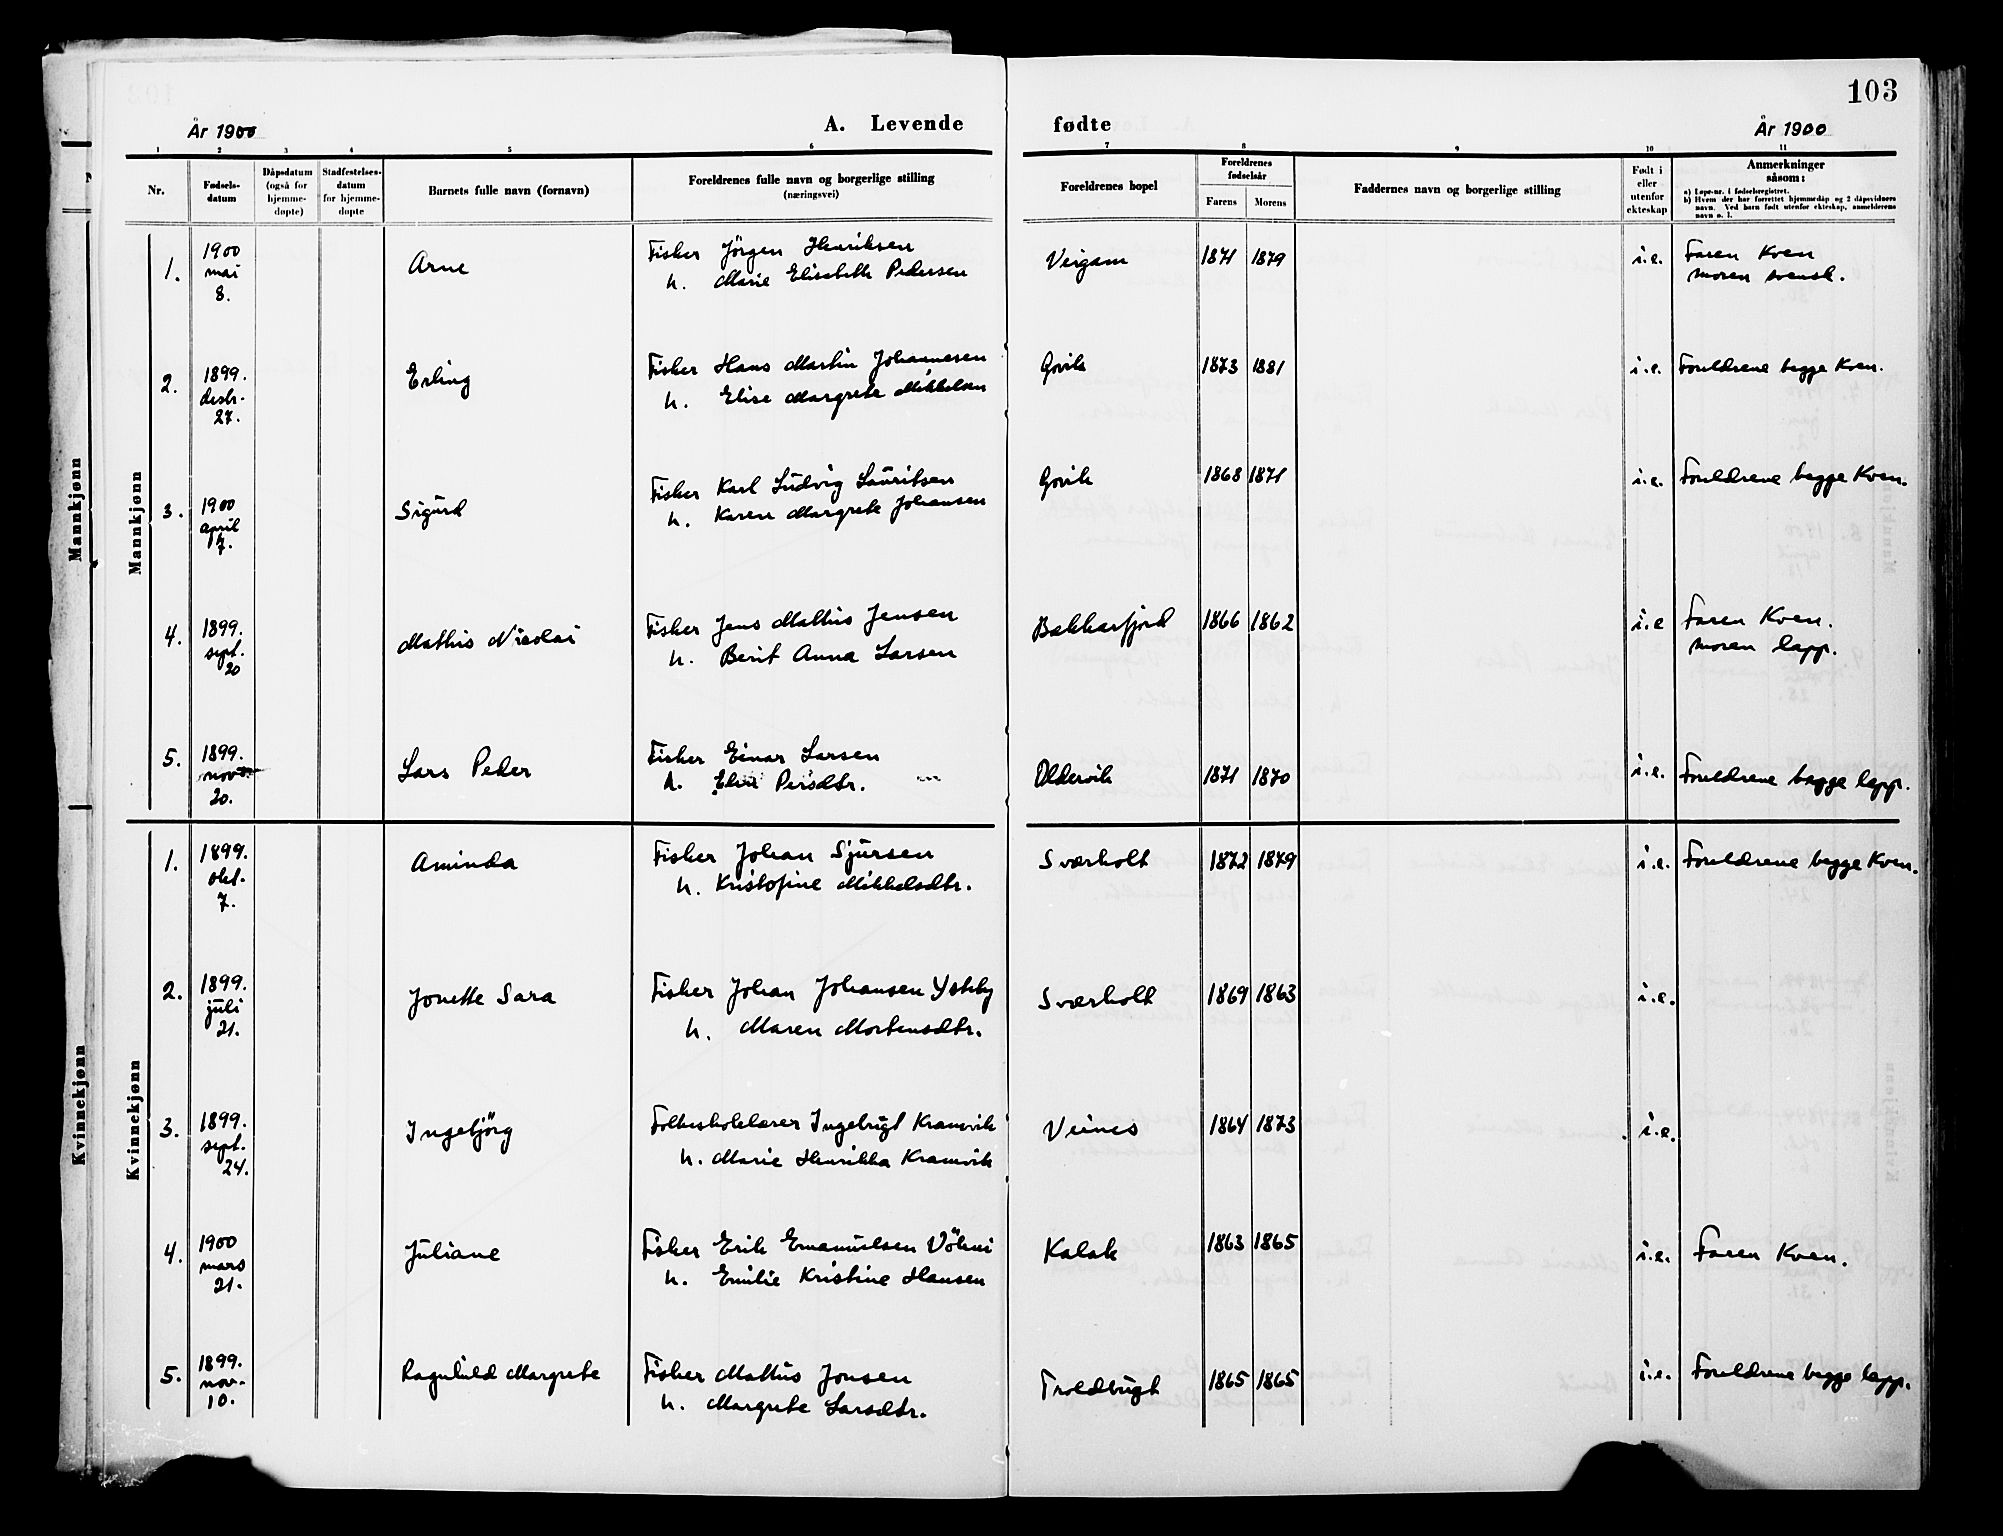 103
År 1900 A. Levende fødte År 1900
1 2 3 4 5 6 7 8 9 10 11
Nr. Fødsels-datum Dåpsdatum (også for hjemme-døpte) Stadfestelses-datum for hjemme-døpte Barnets fulle navn (fornavn) Foreldrenes fulle navn og borgerlige stilling (næringsvei) Foreldrenes bopel Foreldrenes fødselsår Farens Morens Faddernes navn og borgerlige stilling Født i eller utenfor ekteskap Anmerkninger såsom:
a) Løpe-nr. i fødselsregistret.
b) Hvem der har forrettet hjemmedåp og 2 dåpsvidners navn. Ved barn født utenfor ekteskap, anmelderens navn o. l.
Mannkjønn
Mannkjønn
1. 1900 mai 8. Arne Fisker Jörgen Henriksen Veigam 1871 1879 i.e. Faren Kven
h. Marie Elisabeth Pedersen moren svensk.
2. 1899. desbr. 27. Erling Fisker Hans Martin Johannesen Govik 1873 1881 i.e. Foreldrene begge Kven.
h. Elise Margrete Mikkelsen
3. 1900 april 7. Sigurd Fisker Karl Ludvig Lauritsen Govik 1868 1871 i.e. Foreldrene begge Kven.
h. Karen Margrete Johansen
4. 1899. sept. 20 Mathis Nicolai Fisker Jens Mathis Jensen Bakkarfjord 1866 1862 i.e Faren Kven.
h. Berit Anna Larsen moren lapp.
5. 1899. nov 20. Lars Peder Fisker Einar Larsen Oldervik 1871 1870 i.e. Foreldrene begge lapp.
h. Elen Persdtr.
Kvinnekjønn
Kvinnekjønn
1. 1899. okt. 7. Aminda Fisker Johan Sjursen Sværholt 1872 1879 i.e. Foreldrene begge Kven.
h. Kristofine Mikkelsdtr.
2. 1899. juli 21. Jonette Sara Fisker Johan Johansen Ysteby Sværholt 1869 1863 i.e.
h. Maren Mortensdtr.
3. 1899. sept. 24. Ingebjörg Folkeskolelærer Ingebrigt Kramvik Veines 1864 1873 i.e.
h. Marie Henrikka Kramvik
4. 1900 mars 21. Juliane Fisker Erik Emanuelsen Vöhni Kalak 1863 1865 i.e. Faren Kven.
h. Emilie Kristine Hansen
5. 1899. nov. 10. Ragnhild Margrete Fisker Mathis Jonsen Troldbugt 1865 1865 i.e. Foreldrene begge lapp.
h. Margrete Larsdtr.